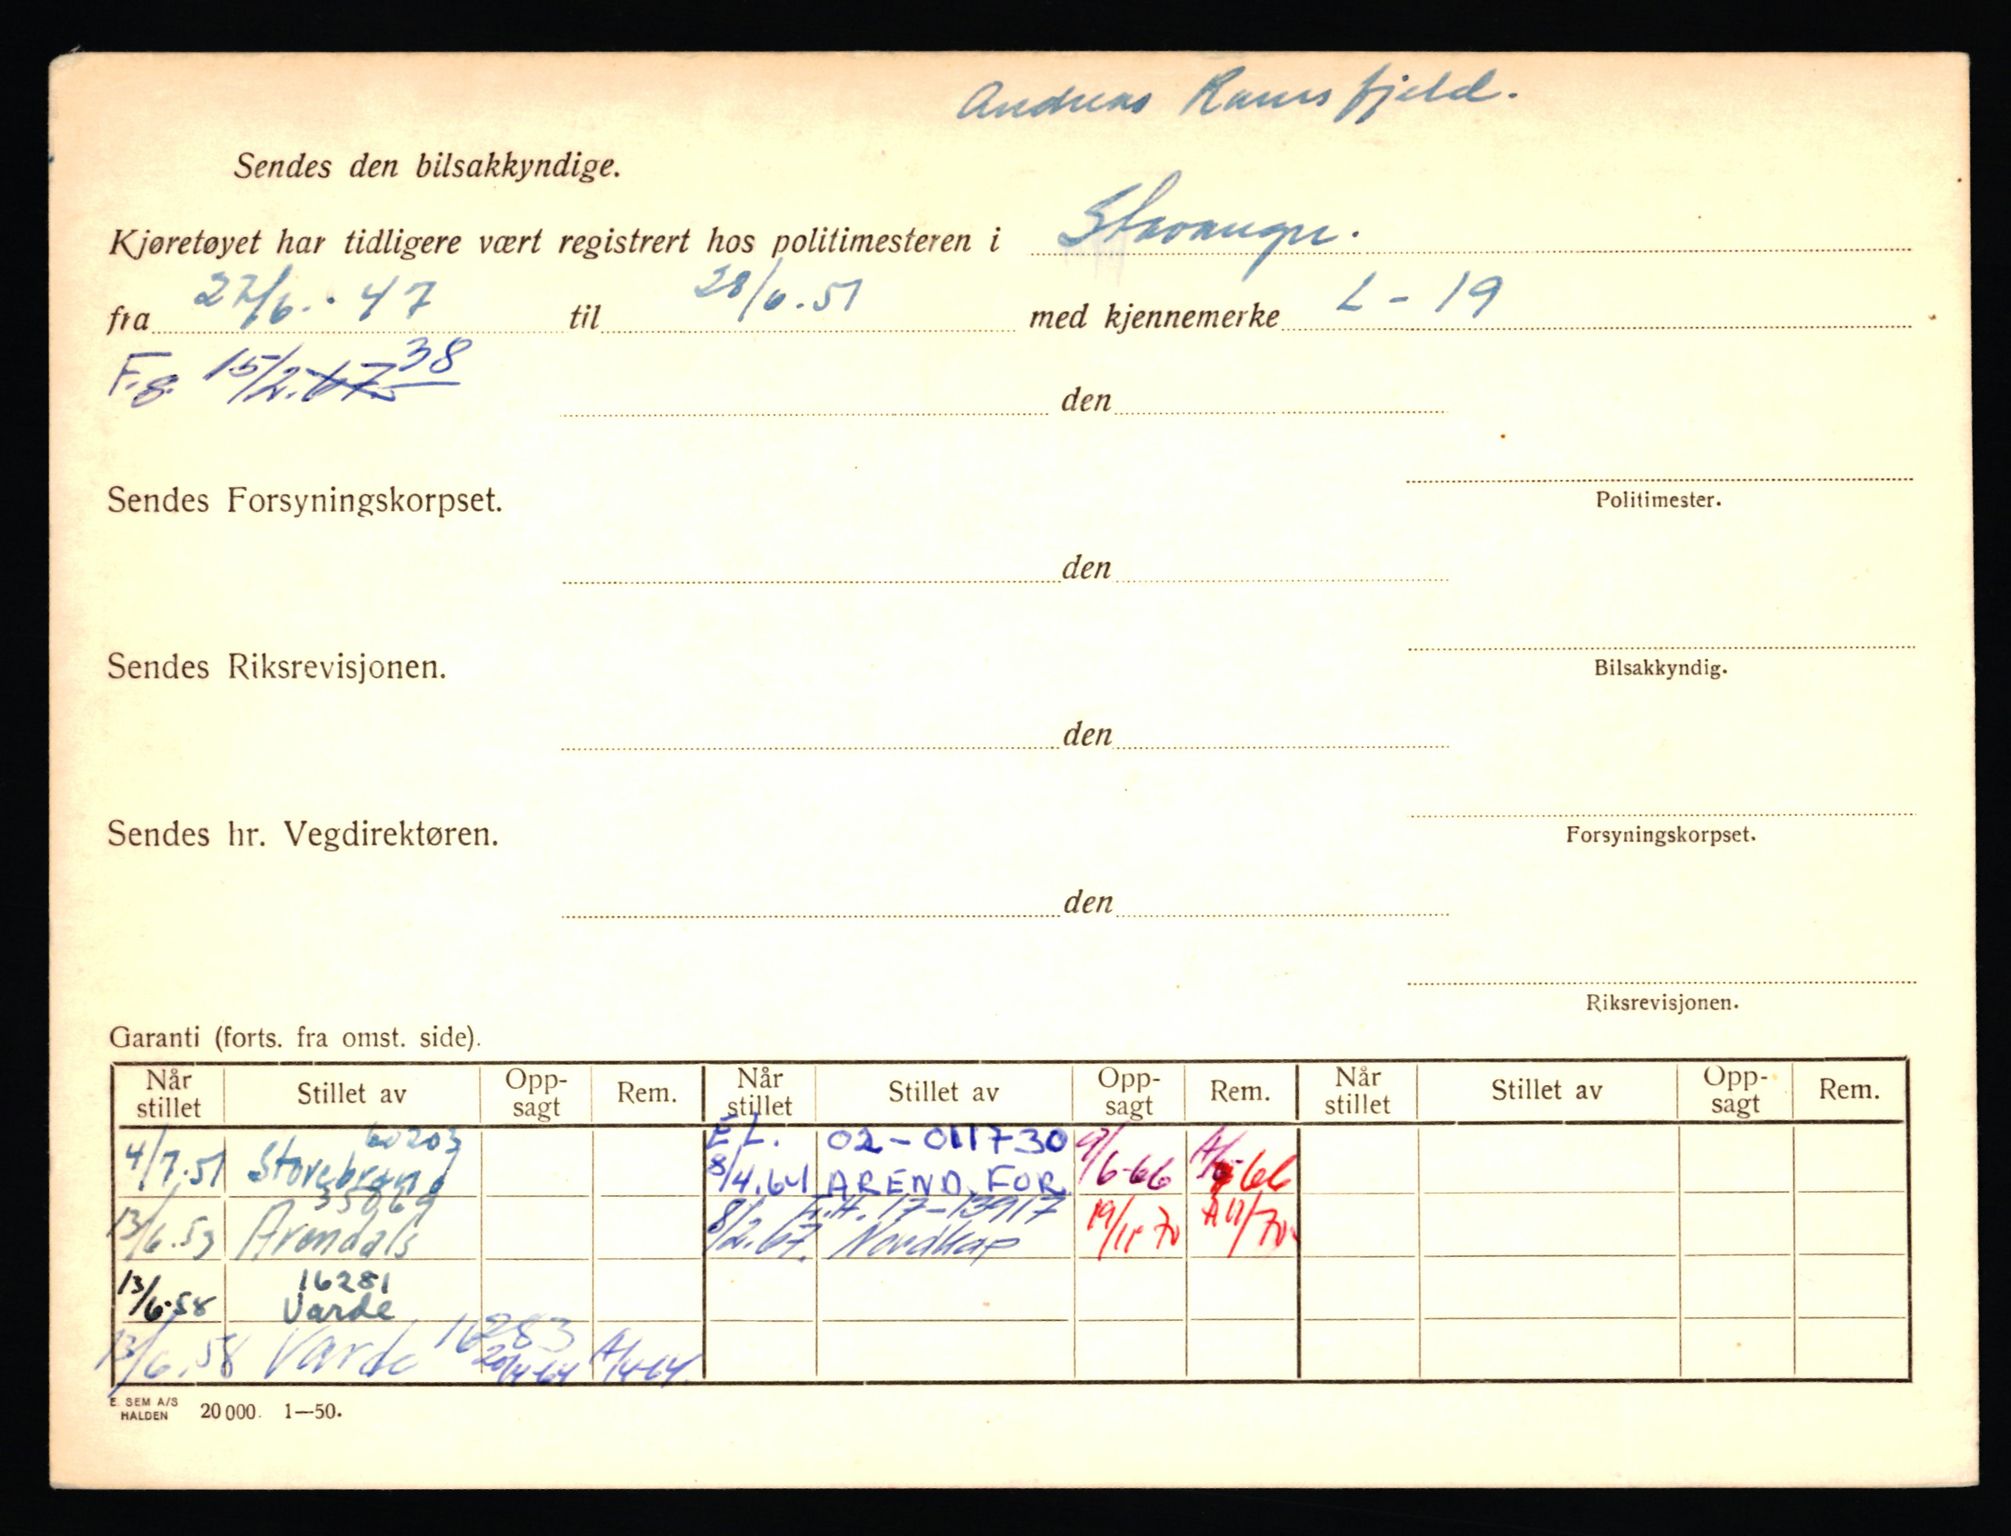 Andreas Ramsfjeld.
Sendes den bilsakkyndige.
Kjøretøyet har tidligere vært registrert hos politimesteren i Stavanger.
fra 27/6. 47 til 28/6.51 med kjennemerke L - 19
F.g. 15/2. 67 38
den
Sendes Forsyningskorpset.
Politimester.
den
Sendes Riksrevisjonen.
Bilsakkyndig.
den
Sendes hr. Vegdirektøren.
Forsyningskorpset.
den
Riksrevisjonen.
Garanti (forts. fra omst. side).
Når stillet Stillet av Opp-sagt Rem. Når stillet Stillet av Opp-sagt Rem. Når stillet Stillet av Opp-sagt Rem.
60203 E L. 02-011730
4/7.51 Storebrand 8/4.64 AREND. FOR 9/6-66 66
35869 17-13917
13/6.53 Arendals 8/2.67. Nordkap 19/11 70 A 11/70
16281
13/6-58 Varde
13/6.58 Varde 16283 20/4-64 A/4-64.
E. SEM A/S
HALDEN 20 000. 1—50.